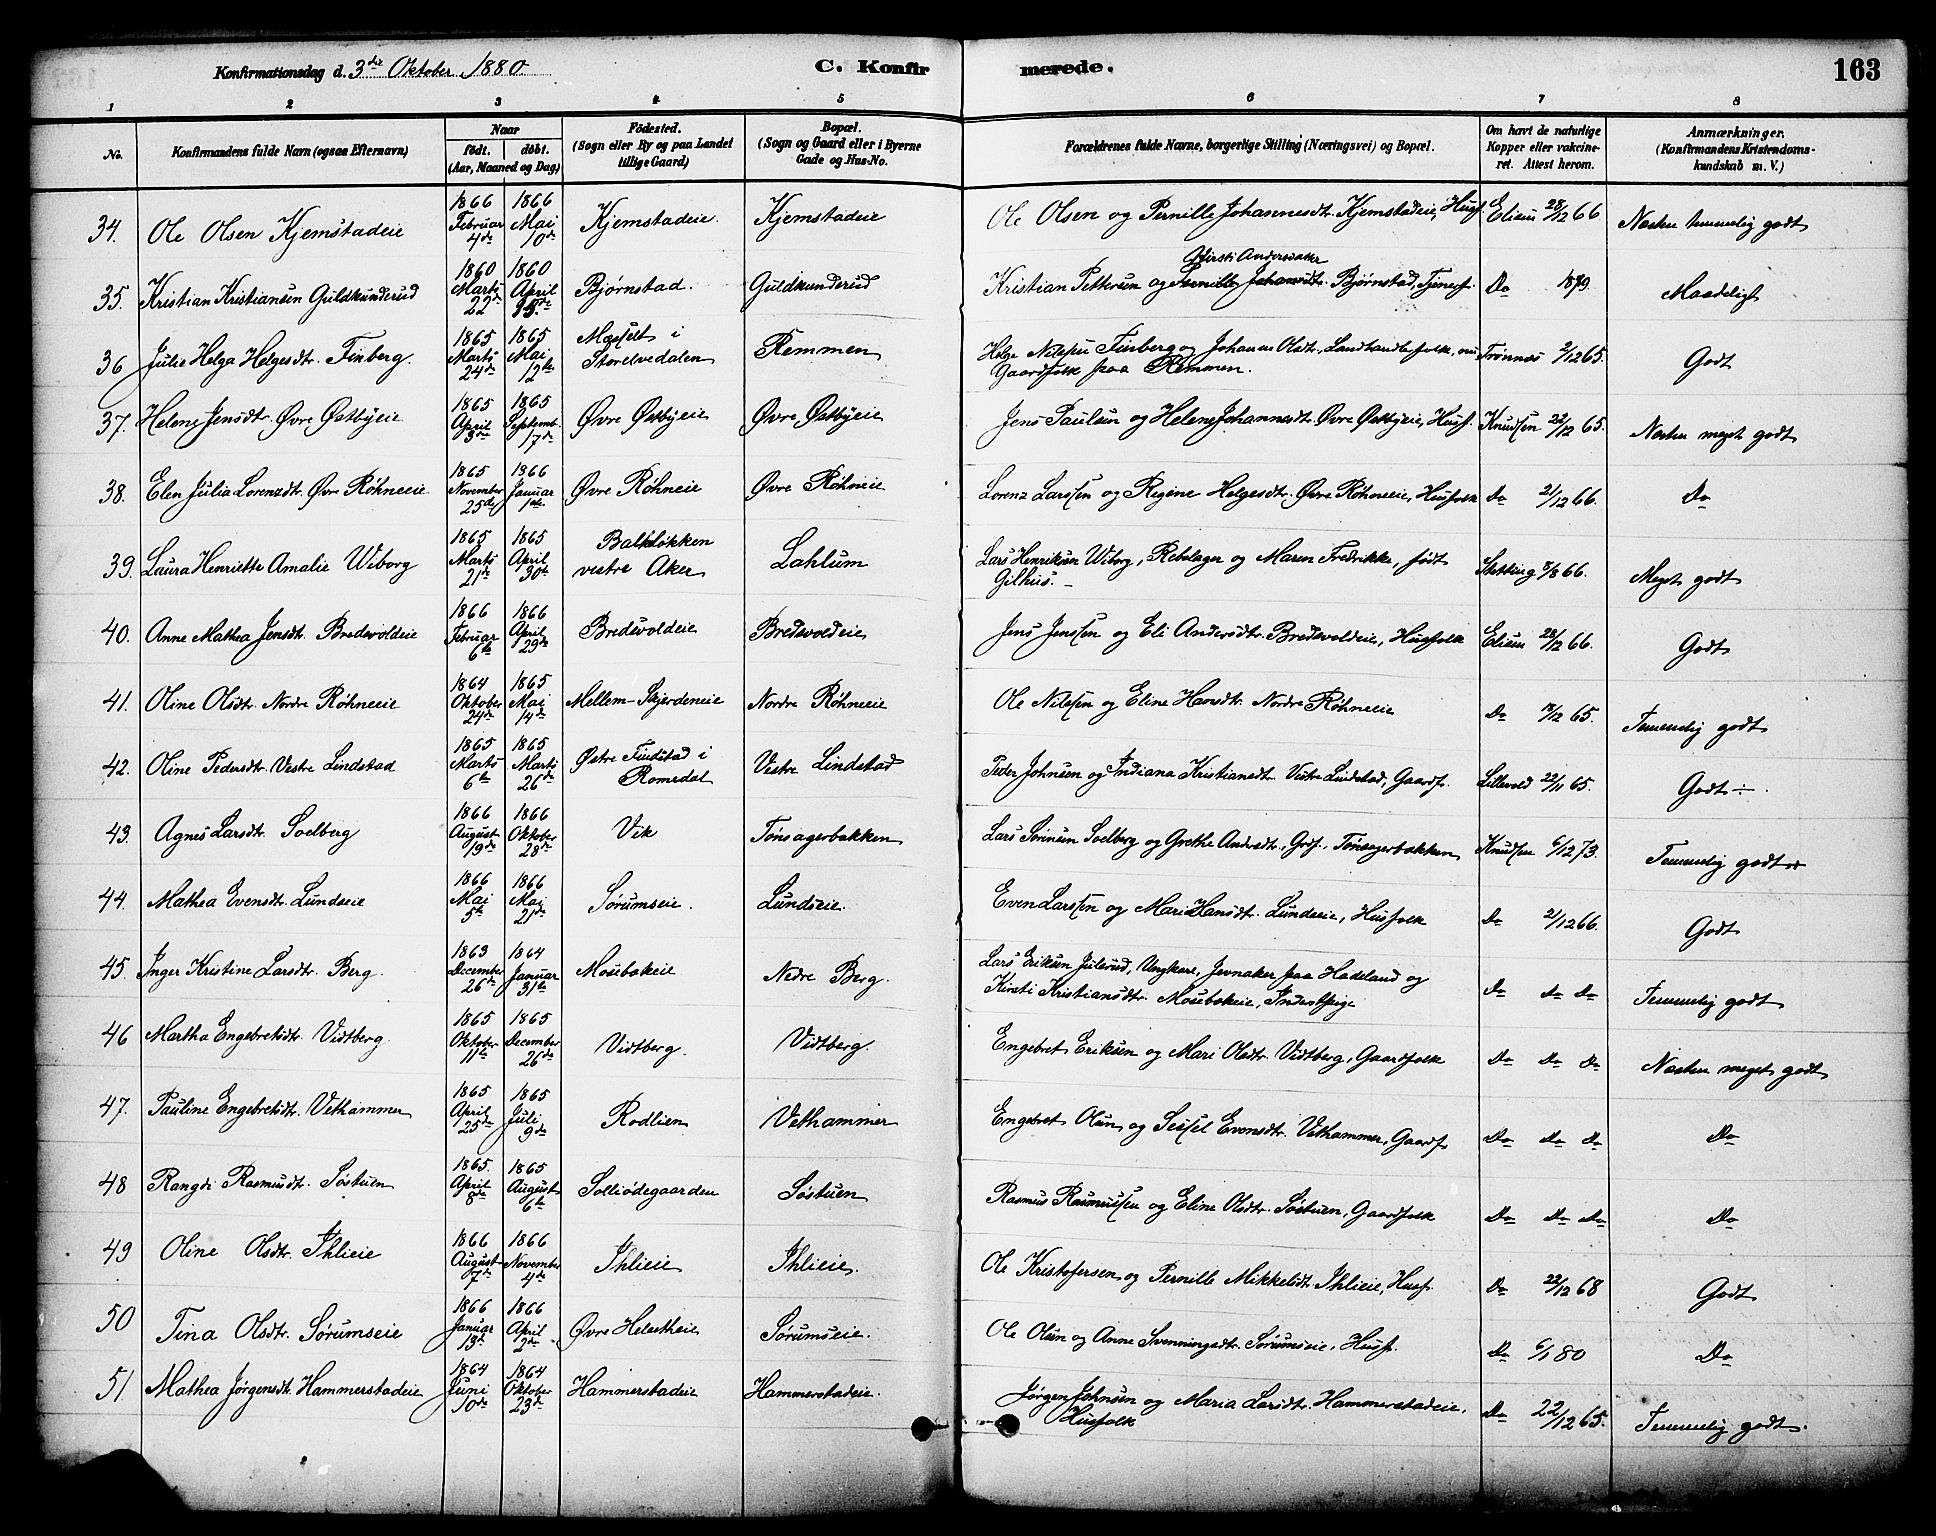 Konfirmationsdag d. 3die Oktober 1880. C. Konfirmerede. 163
1 2 3 4 5 6 7 8
No. Konfirmandens fulde Navn (ogsaa Efternavn) Naar født. døbt. (Aar, Maaned og Dag) Fødested. (Sogn eller By og paa Landet tillige Gaard) Bopæl. (Sogn og Gaard eller i Byerne Gade og Hus-No. Forældrenes fulde Navne, borgerlige Stilling (Næringsvei) og Bopæl. Om havt de naturlige Kopper eller vakcineret. Attest herom. Anmærkninger. (Konfirmandens Kristendomskundskab m. V.)
34. Ole Olsen Kjemstadeie 1866 Februar 4de 1866 Mai 10de Kjemstadeie. Kjemstadeie Ole Olsen og Pernille Johannesdt. Kjemstadeie, Husf. Elieson 28/12 66 Næsten temmelig godt
35. Kristian Kristiansen Guldkunderud 1860 Marts 22de 1860 April 15de Bjørnstad. Guldkunderud Kristian Pettersen og Pernille Johansdt. Bjørnstad, Tjenesf. Do 1879. Maadeligt
36 Julie Helga Helgesdtr. Finberg. 1865 Marts 24de 1865 Mai 12te i Storelvedalen Remmen Helge Nilssen Finberg og Johanne Olsdt., Landhandlerfolk, nu Gaardfolk paa Remmen. Trønnæs 2/12 65. Godt
37. Helene Jensdtr. Øvre Østbyeie 1865 April 3die 1865 Septemb. 17de Øvre Østbyeie Øvre Østbyeie Jens Paulsen og Helene Johannesdt. Øvre Østbyeie, Husf. Knudsen 22/12 65. Næsten meget godt
38. Elen Julia Lorenzdt. Øvre Røhneeie 1865 November 25de 1866 Januar 1ste Øvre Røhneie Øvre Røhneie Lorenz Larssen og Regine Helgesdt. Øvre Røhneeie, Husfolk Do 21/12 66. Do
39. Laura Henriette Amalie Wiborg 1865 Marts 21de 1865 April 30te Balkeløkken vestre Aker Lahlum Lars Henriksen Wiborg, Rebslager og Maren Fredrikke, født Gilhus. - 7/8 66. Meget godt
40. Anne Mathea Jensdt. Bredevoldeie 1866 Februar 6te 1866 April 29de Bredevoldeie Bredevoldeie Jens Jenssen og Eli Andersdtr. Bredevoldeie, Husfolk Elieson 28/12 66. Godt
41. Oline Olsdtr. Nordre Røhneeie 1864 Oktober 24de 1865 Mai 14de Mellem-Skjerdeneie Nordre Røhneeie Ole Nilssen og Eline Hansdtr. Nordre Røhneeie Do 17/12 65. Temmelig godt
42. Oline Pedersdtr. Vestre Lindstad 1865 Marts 6te 1865 Marts 26de Østre Findstad i Romsdal Vestre Lindstad Peder Johnsen og Indiana Kristiansdt. Vestre Lindstad, Gaardf. Lillevold 22/11 65. Godt ÷
43. Agnes Larsdtr. Soelberg 1866 August 19de 1866 Oktober 28de Vik Tønsagerbakken Lars Sørensen Soelberg og Grethe Andrsdtr., Grdf., Tønsagerbakken Knudsen 6/12 73. Temmelig godt
44. Mathea Evensdtr. Lundseie 1866 Mai 5te 1866 Mai 21de Sørumseie. Lundseie. Even Larssen og Mari Hansdtr. Lundseie, Husfolk Do 21/12 66. Godt
45. Inger Kristine Larsdtr. Berg. 1863 December 26de 1864 Januar 31te Mosebakeie Nedre Berg. Lars Eriksen Julsrud, Ungkarl, Jevnaker paa Hadeland og Kirsti Kristiansdtr. Mosebakeie, Inderstpige Do Do Do Temmelig godt
46 Martha Engebretsdtr. Vidtberg. 1865 Oktober 11te 1865 December 26de Vidtberg. Vidtberg. Engebret Eriksen og Mari Olsdtr. Vidtberg, Gaardfolk Do Do Do Næsten meget godt
47. Pauline Engebretsdtr. Vethammer 1865 April 25de 1865 Juli 9de Rodlien Vethammer Engebret Olsen og Sessel Evensdtr. Vethammer, Gaardf Do Do Do Do
48 Rangdi Rasmusdtr. Søstuen 1865. April 8de 1865 August 6te Solliødegaarden Søstuen Rasmus Rasmussen og Eline Olsdtr. Søstuen, Gaardfolk Do Do Do Do
49 Oline Olsdtr. Ihlieie 1866 August 7de 1866 November 4de Ihlieie Ihlieie. Ole Kristofersen og Pernille Mikkelsdt. Ihlieie, Husf. Do 22/12 68 Godt
50 Tina Olsdtr. Sørumseie 1866 Januar 13de 1866 April 2de Øvre Helsetheie Sørumseie. Ole Olsen og Anne Svenningsdtr. Sørumseie, Husf. Do 6/1 80 Do
51. Mathea Jørgensdt. Hammerstadeie 1864 Juni 10de 1864 Oktober 23de Hammerstadeie Hammerstadeie. Jørgen Johnsen og Maria Larsdtr. Hammerstadeie, Husfolk Do 22/12 65. Temmelig godt.